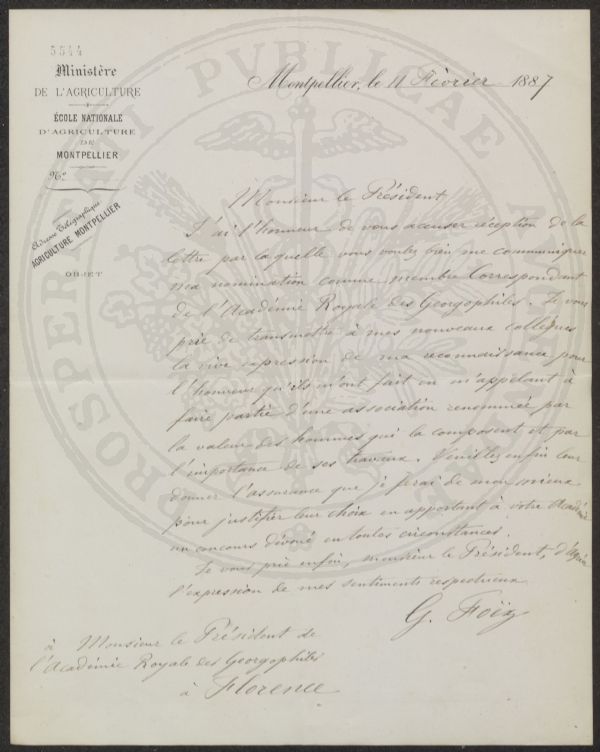 5544
Ministère
DE L'AGRICULTURE
ÉCOLE NATIONALE
D'AGRICULTURE
DE
MONTPELLIER
No
Adresse Télégraphique
AGRICULTURE MONTPELLIER
OBJET
Montpellier, le 11 Février 1887
Monsieur le Président
J'ai l'honneur de vous accuser réception de la
lettre par laquelle vous voulez bien me communiquer
ma nomination comme membre Correspondant
de l'Académie Royale des Georgophiles. Je vous
prie de transmettre à mes nouveaux collègues
la vive expression de ma reconnaissance pour
l'honneur qu'ils m'ont fait en m'appelant à
faire partie d'une association renommée par
la valeur des hommes qui la composent et par
l'importance de ses travaux. Veuillez enfin leur
donner l'assurance que je ferai de mon mieux
pour justifier leur choix en apportant à votre Académie
un concours dévoué en toutes circonstances.
Je vous prie enfin, monsieur le Président, d'agréer
l'expression de mes sentiments respectueux
G. Foëx
à Monsieur le Président de
l'Académie Royale des Georgophiles
à Florence
PROSPERITATI PVBLICAE